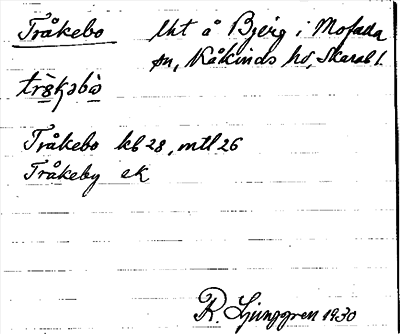 Tråkebo lht å Bjerg i Mofalla
sn, Kåkinds hd, Skarab l.
trå̀kəbò
Tråkebo kb 28, mtl 26
Tråkeby ek
R. Ljunggren 1930